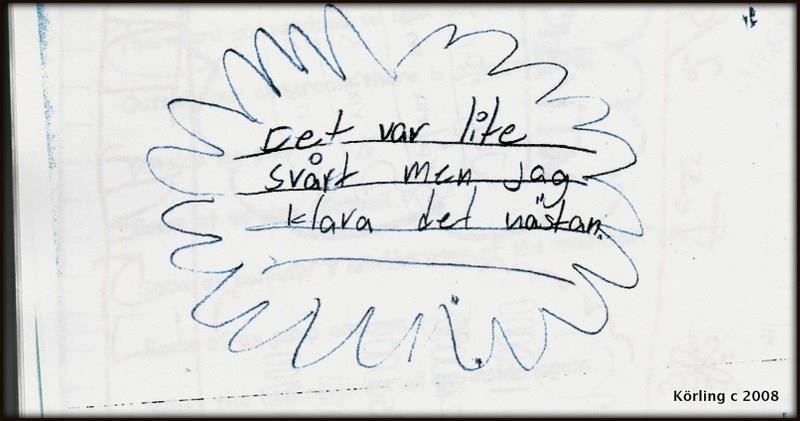 Det var lite
svårt men jag
klara det nästan.
Körling c 2008